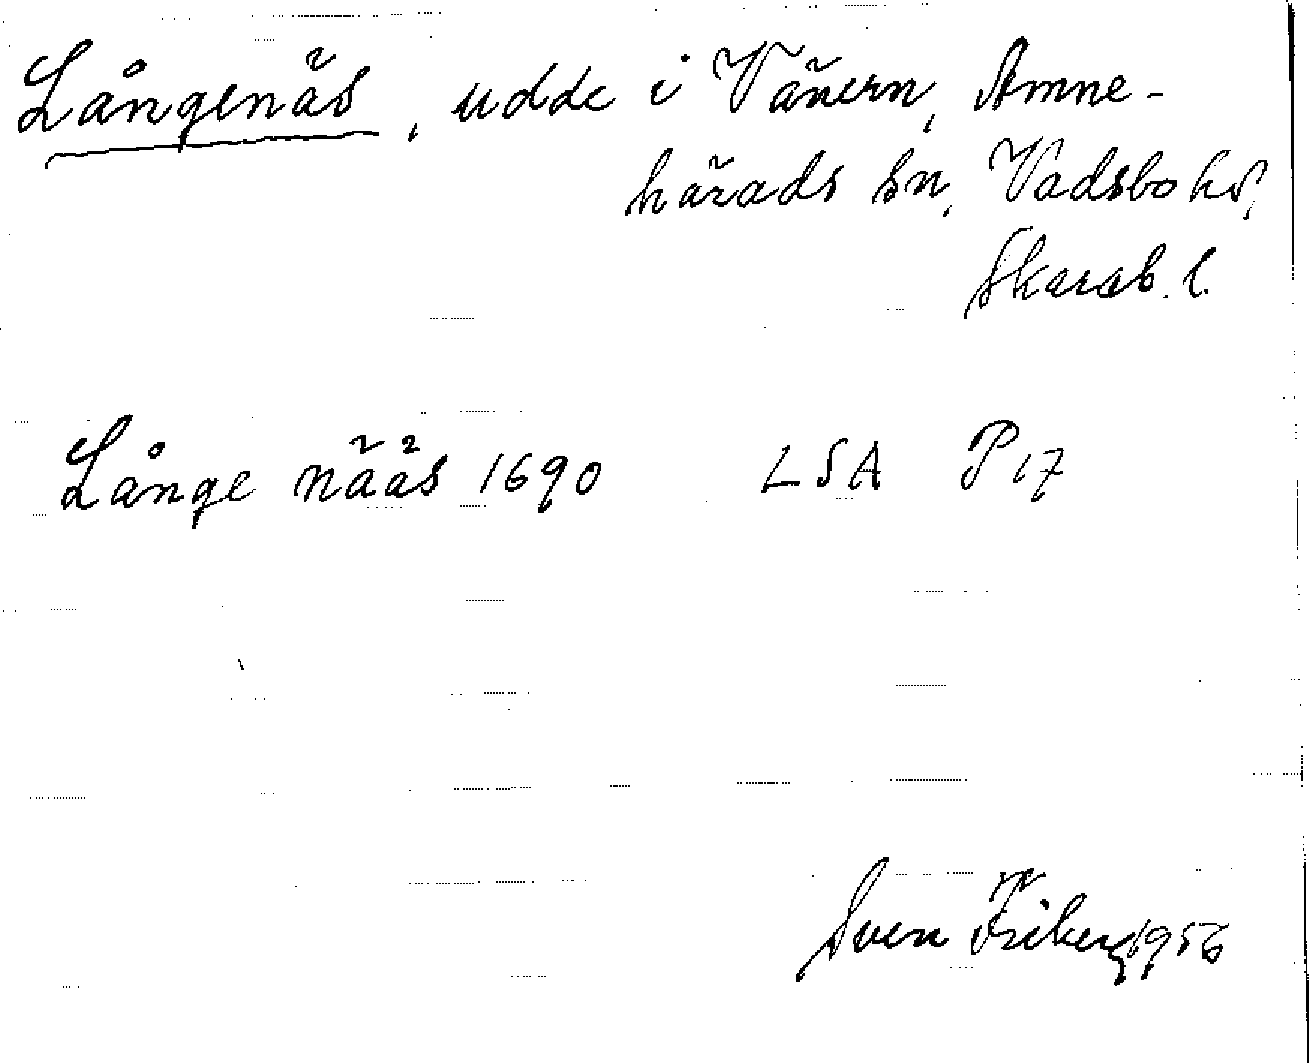 Långenäs, udde i Vänern, Amne-
härads sn, Vadsbo hd,
Skarab. l.
Långe nääs 1690 LSA P 17
Sven Friberg 1956